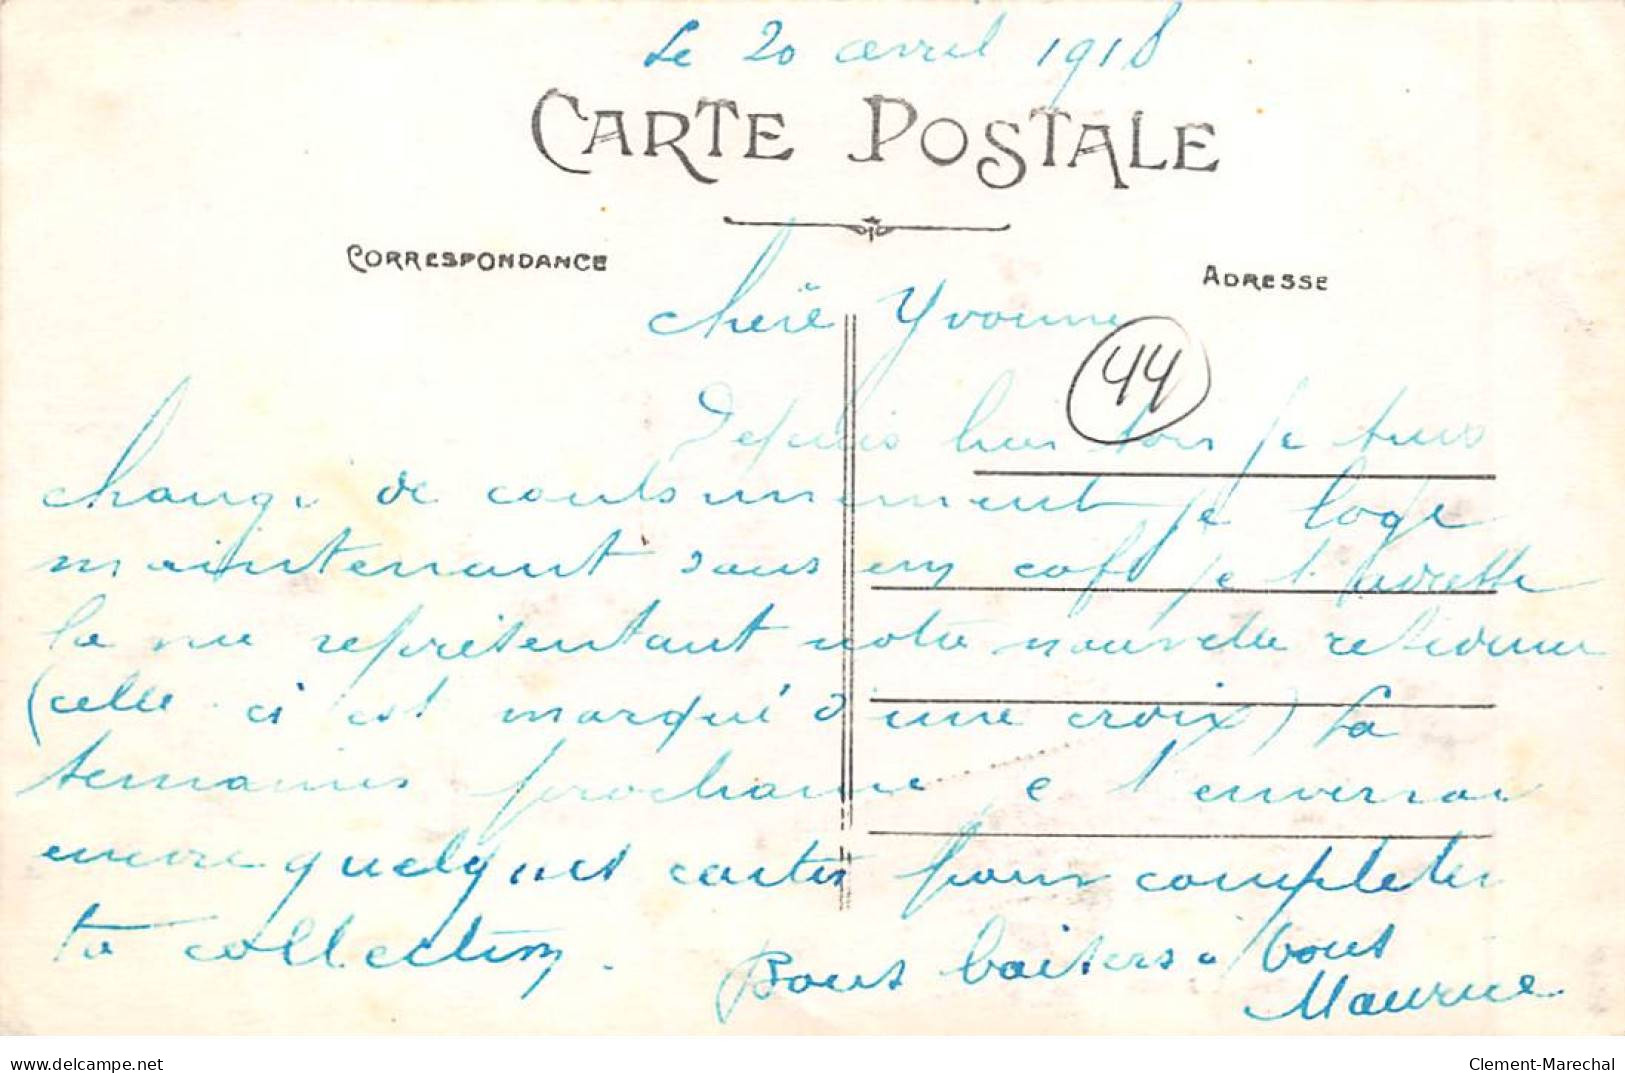 Le 20 avril 1918
CARTE POSTALE
CORRESPONDANCE
ADRESSE
Chère Yvonne
44
Depuis hier soir je suis
changé de cantonnement je loge
maintenant dans un café je t'adresse
la vue représentant notre nouvelle
(celle-ci est marqué d'une croix) La
semaines prochaine je t'enverrai
encore quelques cartes pour completer
ta collection.
Bons baisers à tous
Maurice
delcampe.net
Clement-Marechal